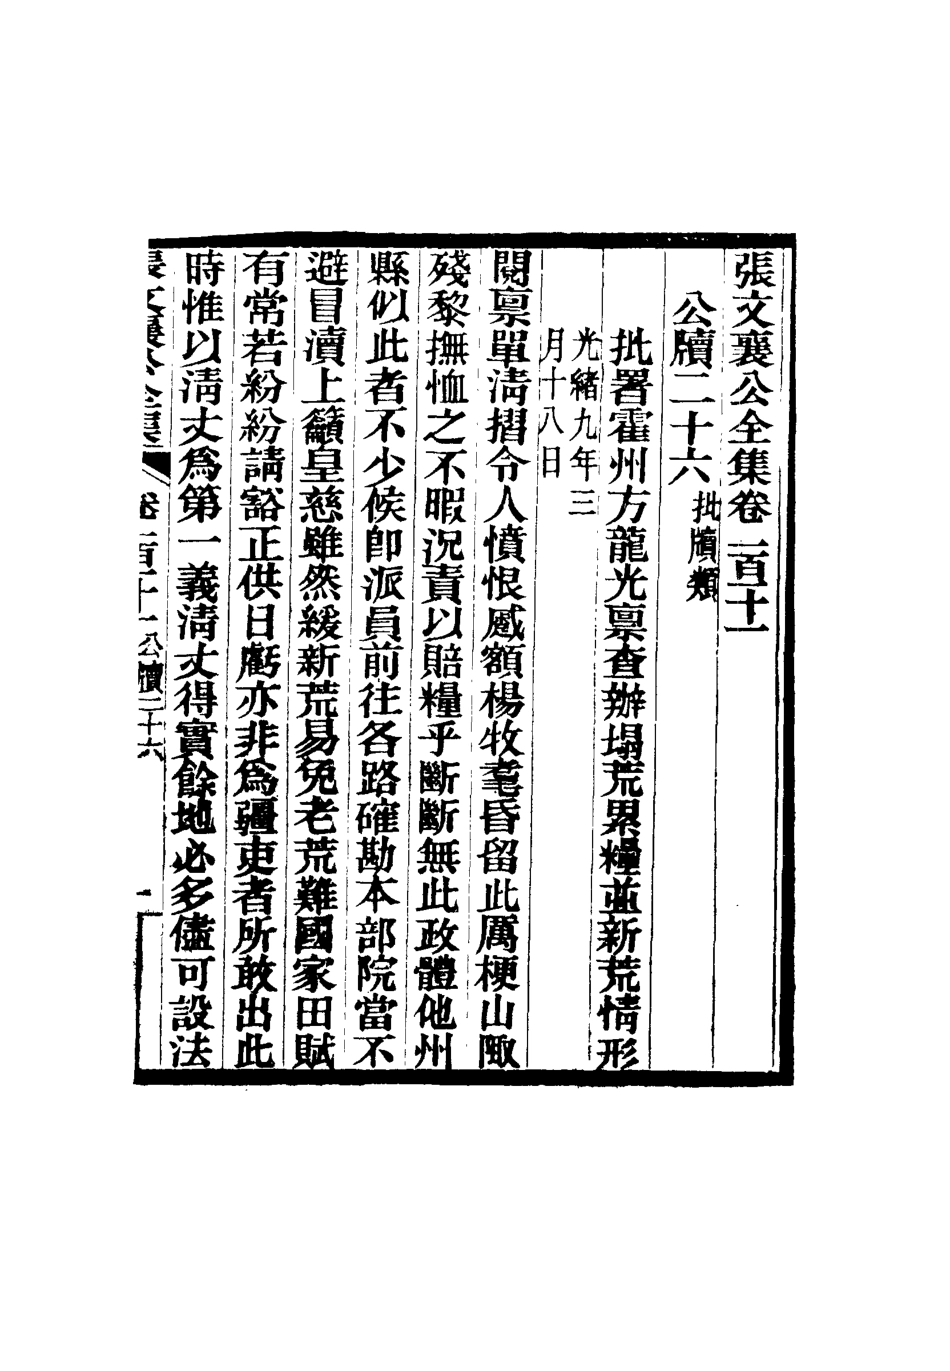 張文襄公全集卷一百十一
公牘二十六 批牘類
批署霍州方龍光稟查辦塌荒累糧並新荒情形
光緒九年三
月十八日
閱稟單清摺令人憤恨慼額楊牧耄昏留此厲梗山陬
殘黎撫恤之不暇況責以賠糧乎斷斷無此政體他州
縣似此者不少候卽派員前往各路確勘本部院當不
避冒瀆上籲皇慈雖然緩新荒易免老荒難國家田賦
有常若紛紛請豁正供日虧亦非爲疆吏者所敢出此
時惟以清丈爲第一義清丈得實餘地必多儘可設法
張文襄公全集 卷一百十一 公牘二十六 一